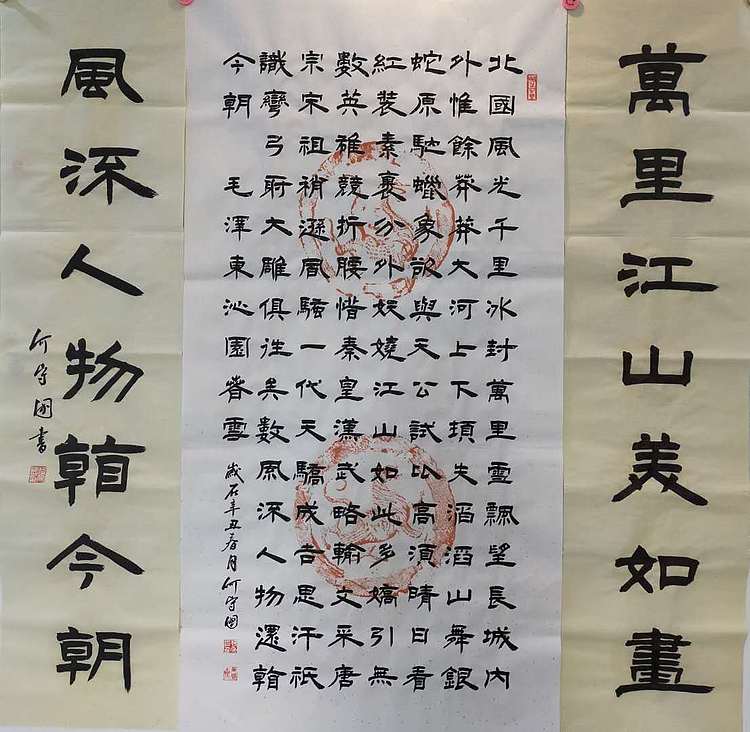 萬里江山美如畫
北國風光千里冰封萬里雪飄望長城內
外惟餘莽莽大河上下頓失滔滔山舞銀
蛇原馳蠟象欲與天公試比高須晴日看
紅裝素裹分外妖嬈江山如此多嬌引無
數英雄競折腰惜秦皇漢武略輸文采唐
宗宋祖稍遜風騷一代天驕成吉思汗祇
識彎弓射大雕俱往矣數風流人物還看
今朝 毛澤東沁園春雪
歲在辛丑春月何守國
風流人物看今朝
何守國書